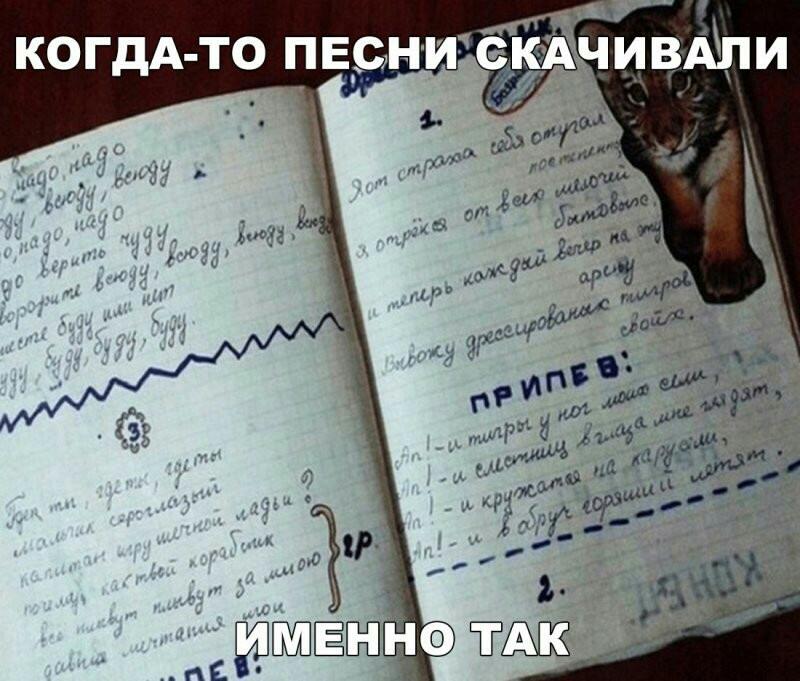 КОГДА-ТО ПЕСНИ СКАЧИВАЛИ
надо, надо
всюду, всюду
надо, надо
верить чуду
всюду, всюду, всюду, всюду
буду или нет
буду, буду, буду.
3
где ты, где ты
мальчик сероглазый
капитан игрушечной ладьи?
почему, как твой кораблик
все плывут за мною
давние мечтания мои
2р.
ПРИПЕВ:
1.
Я от страха себя отучал
постепенно,
я отрёкся от всех мелочей
бытовых,
и теперь каждый вечер на эту
арену
Вывожу дрессированых тигров
своих.
ПРИПЕВ:
Ап!-и тигры у ног моих сели,
Ап!-и с лестниц в глаза мне глядят,
Ап!-и кружатся на карусели,
Ап!-и в обруч горящий летят.
2.
КОНЕЦ
ИМЕННО ТАК